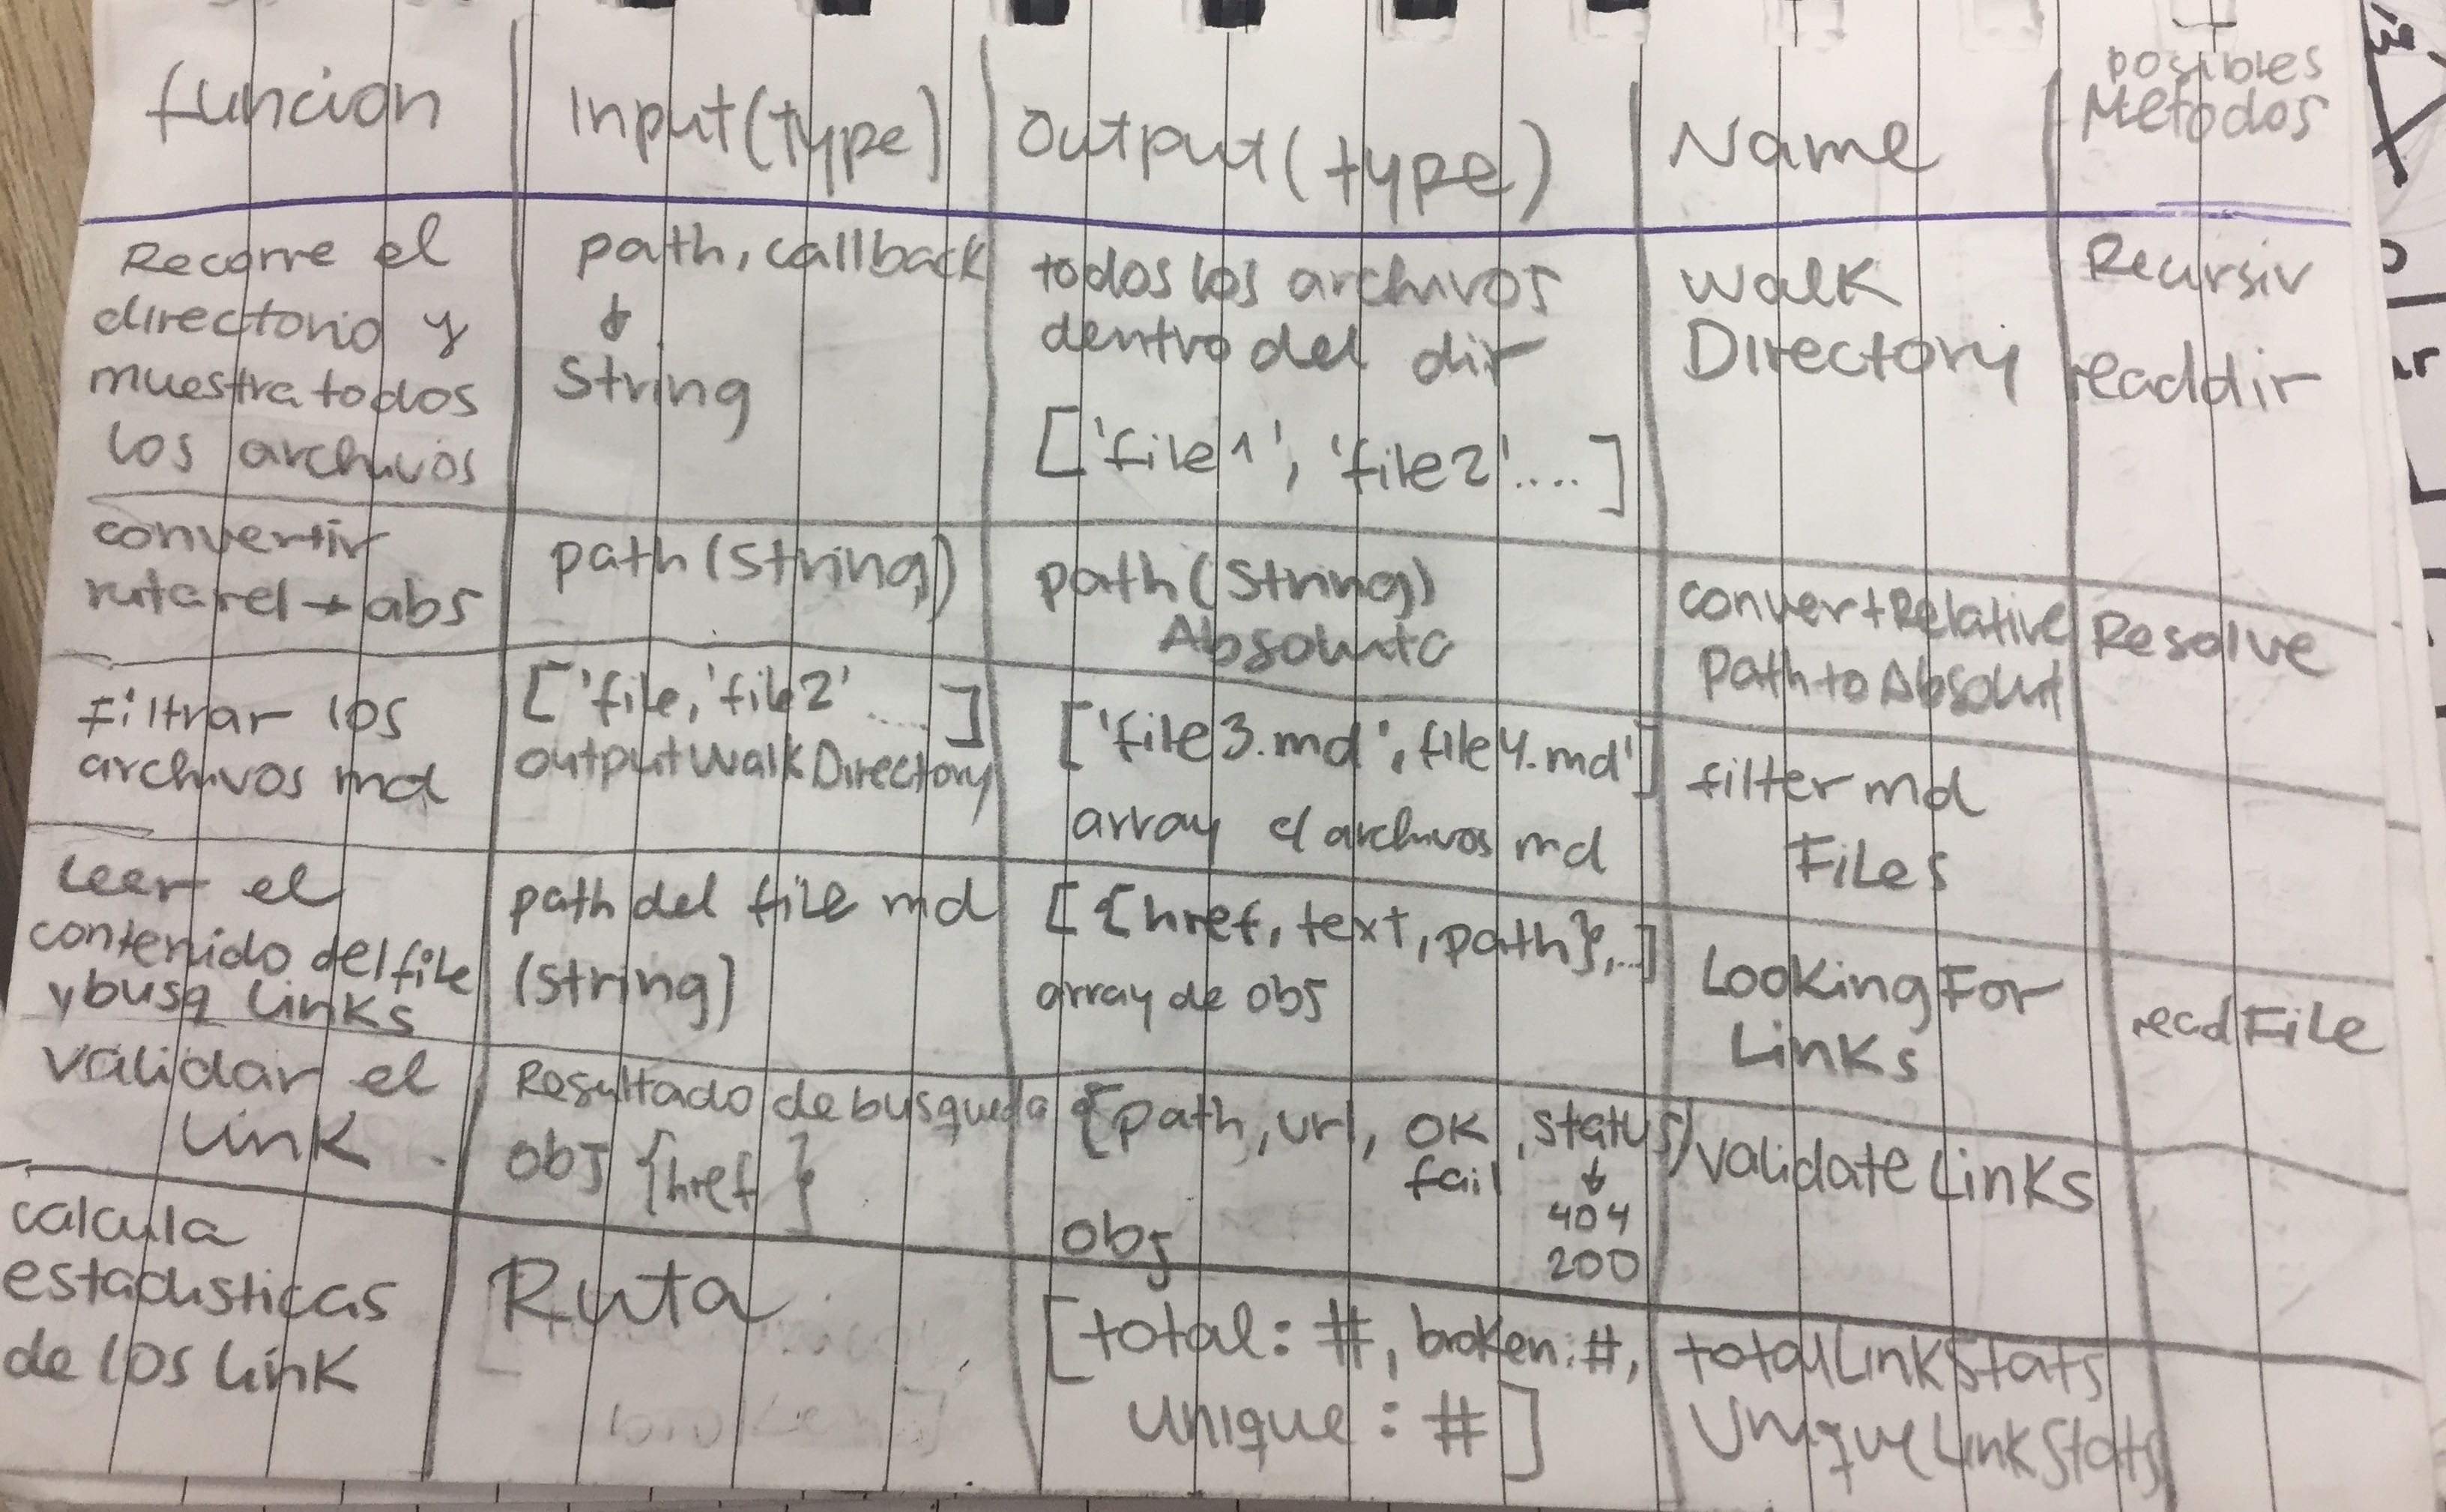 funcion
Input (type)
Output (type)
Name
posibles
Metodos
Recorre el
directorio y
muestra todos
los archivos
path, callback
↓
String
todos los archivos
dentro del dir
['file1', 'file2'....]
Walk
Directory
Recursiv
readdir
convertir
ruta rel → abs
path (string)
path (String)
Absoluta
convertRelative
PathtoAbsolut
Resolve
Filtrar los
archivos md
['file, 'file2' ....]
output Walk Directory
['file3.md', file4.md']
array c/ archivos md
filter md
Files
Leer el
contenido del file
y busq Links
path del file md
(string)
[{href, text, path},..]
array de obj
Looking For
Links
readFile
Validar el
Link.
Resultado de busqueda
obj {href }
{path, url, OK, status}
fail ↓
404
200
obj
validate Links
calcula
estadisticas
de los Link
Ruta
broken]
[total: #, broken: #,
Unique: #]
totalLinkStats
UniqueLinkStats